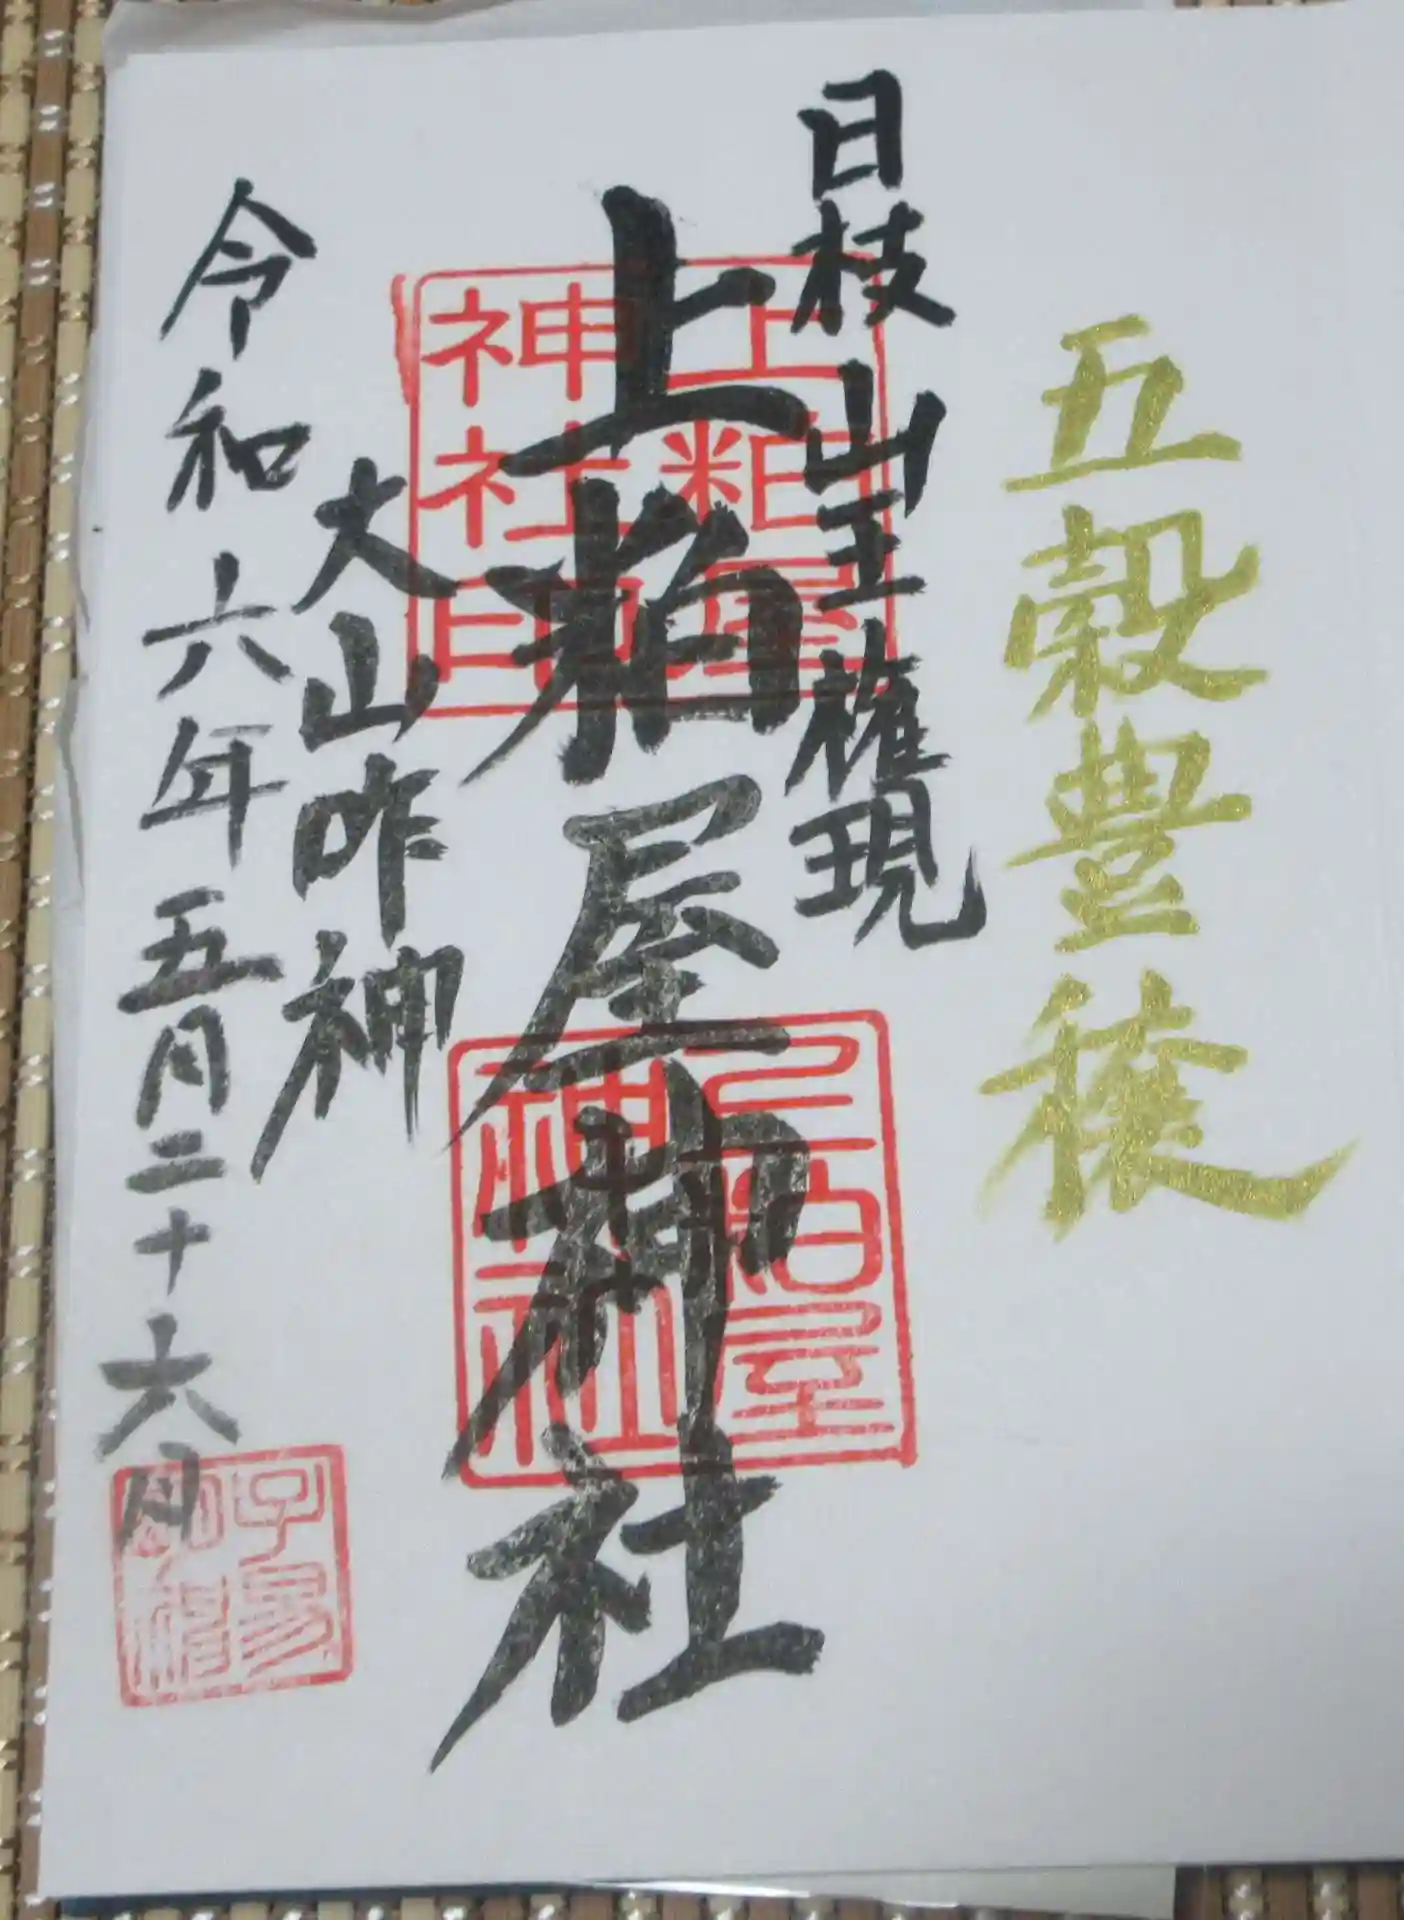 五穀豊穣
日枝山王権現
上粕屋神社
上粕屋
神社印
上粕屋
神社
大山咋神
令和六年五月二十六日
子易